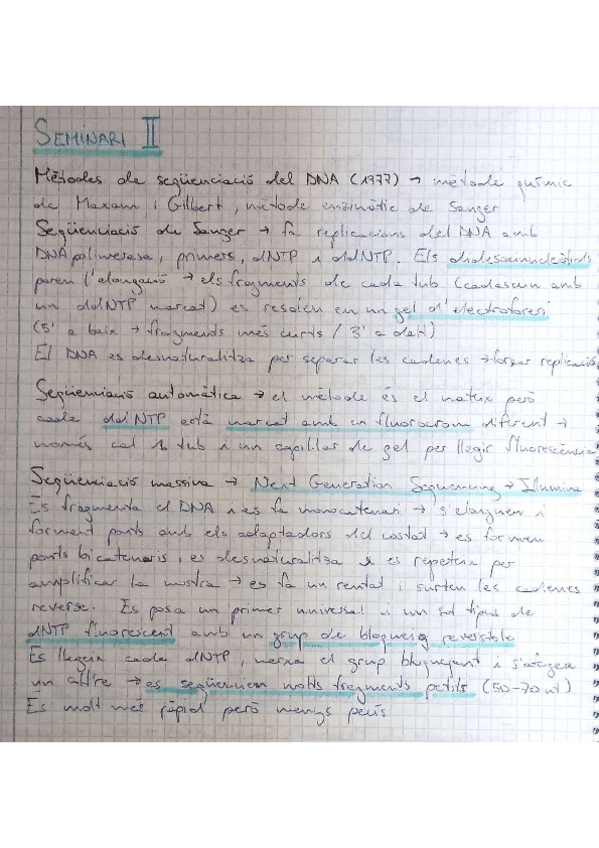 SEMINARI II
Mètodes de seqüenciació del DNA (1977) → mètode químic
de Maxam i Gilbert, mètode enzimàtic de Sanger
Seqüenciació de Sanger → fa replicacions del DNA amb
DNA polimerasa, primers, dNTP i ddNTP. Els
paren l'elongació → els fragments de cada tub (cadascun amb
un ddNTP marcat) es resolen en un gel d'electroforesi
(5' a baix → fragments més curts / 3' a dalt)
El DNA es desnaturalitza per separar les cadenes → forçar replicació
Seqüenciació automàtica → el mètode és el mateix però
cada ddNTP està marcat amb un fluorocrom diferent →
només cal 1 tub i un capil·lar de gel per llegir fluorescència
Seqüenciació massiva → Next Generation Sequencing → Ilumina
Es fragmenta el DNA i es fa monocatenari → s'elonguen i
formen ponts amb els adaptadors del costat → es formen
ponts bicatenaris, es desnaturalitza i es repeteix per
amplificar la mostra → es fa un rentat i surten les cadenes
reverse. Es posa un primer universal i un sol tipus de
dNTP fluorescent amb un grup de bloqueig reversible
Es llegeix cada dNTP, el grup bloquejant i s'afegeix
un altre → es seqüencien molts fragments petits (50-70 nt)
És molt més ràpid però menys precís